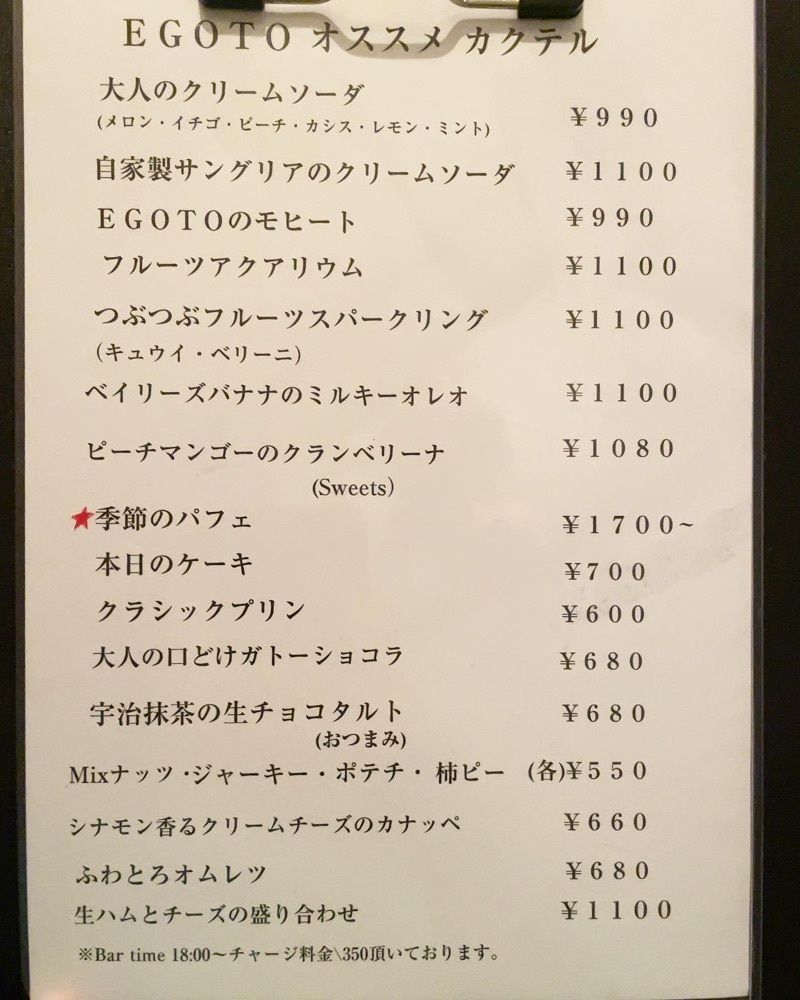 EGOTO オススメ カクテル
大人のクリームソーダ
(メロン・イチゴ・ピーチ・カシス・レモン・ミント) ¥990
自家製サングリアのクリームソーダ ¥1100
EGOTOのモヒート ¥990
フルーツアクアリウム ¥1100
つぶつぶフルーツスパークリング ¥1100
(キュウイ・ベリーニ)
ベイリーズバナナのミルキーオレオ ¥1100
ピーチマンゴーのクランベリーナ ¥1080
(Sweets)
★季節のパフェ ¥1700~
本日のケーキ ¥700
クラシックプリン ¥600
大人の口どけガトーショコラ ¥680
宇治抹茶の生チョコタルト ¥680
(おつまみ)
Mixナッツ・ジャーキー・ポテチ・柿ピー (各)¥550
シナモン香るクリームチーズのカナッペ ¥660
ふわとろオムレツ ¥680
生ハムとチーズの盛り合わせ ¥1100
※Bar time 18:00〜チャージ料金\350頂いております。